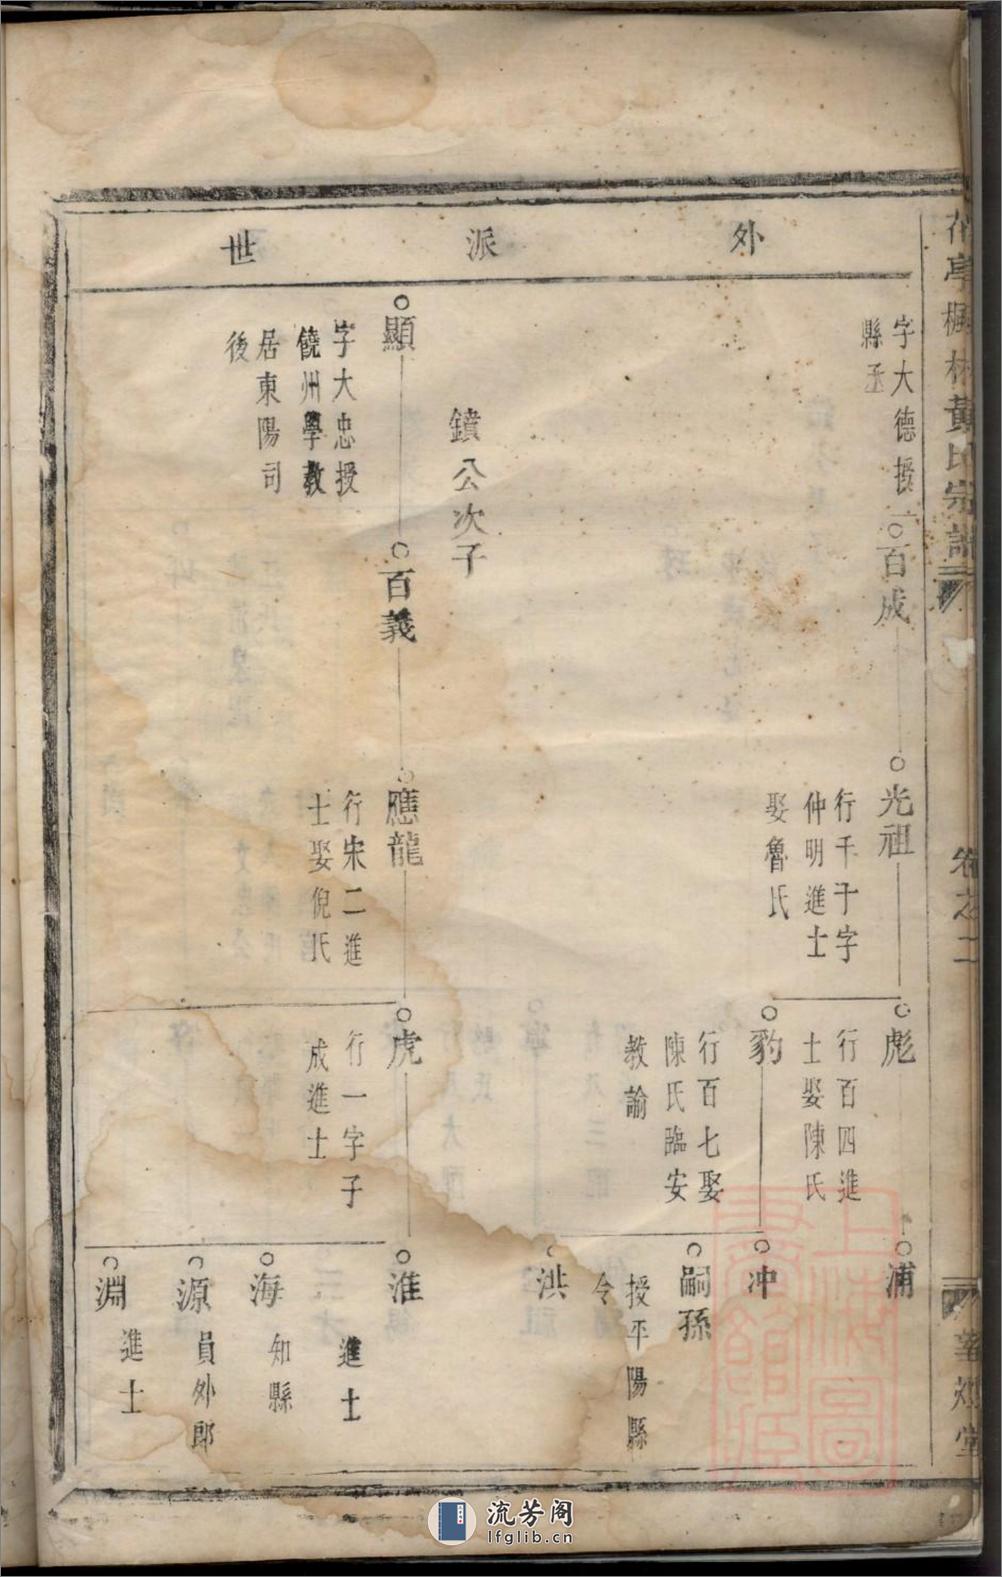 外派世
字大德授
縣丞
百成
光祖
行千十字
仲明進士
娶魯氏
彪
行百四進
士娶陳氏
浦
豹
行百七娶
陳氏臨安
教諭
冲
嗣孫
授平陽縣
令
洪
鐼公次子
顯
字大忠授
饒州學教
居東陽司
後
百義
應龍
行宋二進
士娶倪氏
虎
行一字子
成進士
淮
進士
海
知縣
源
員外郎
淵
進士
楓林黃氏宗譜
卷之二
堂
上海圖書館藏
流芳阁
lfglib.cn